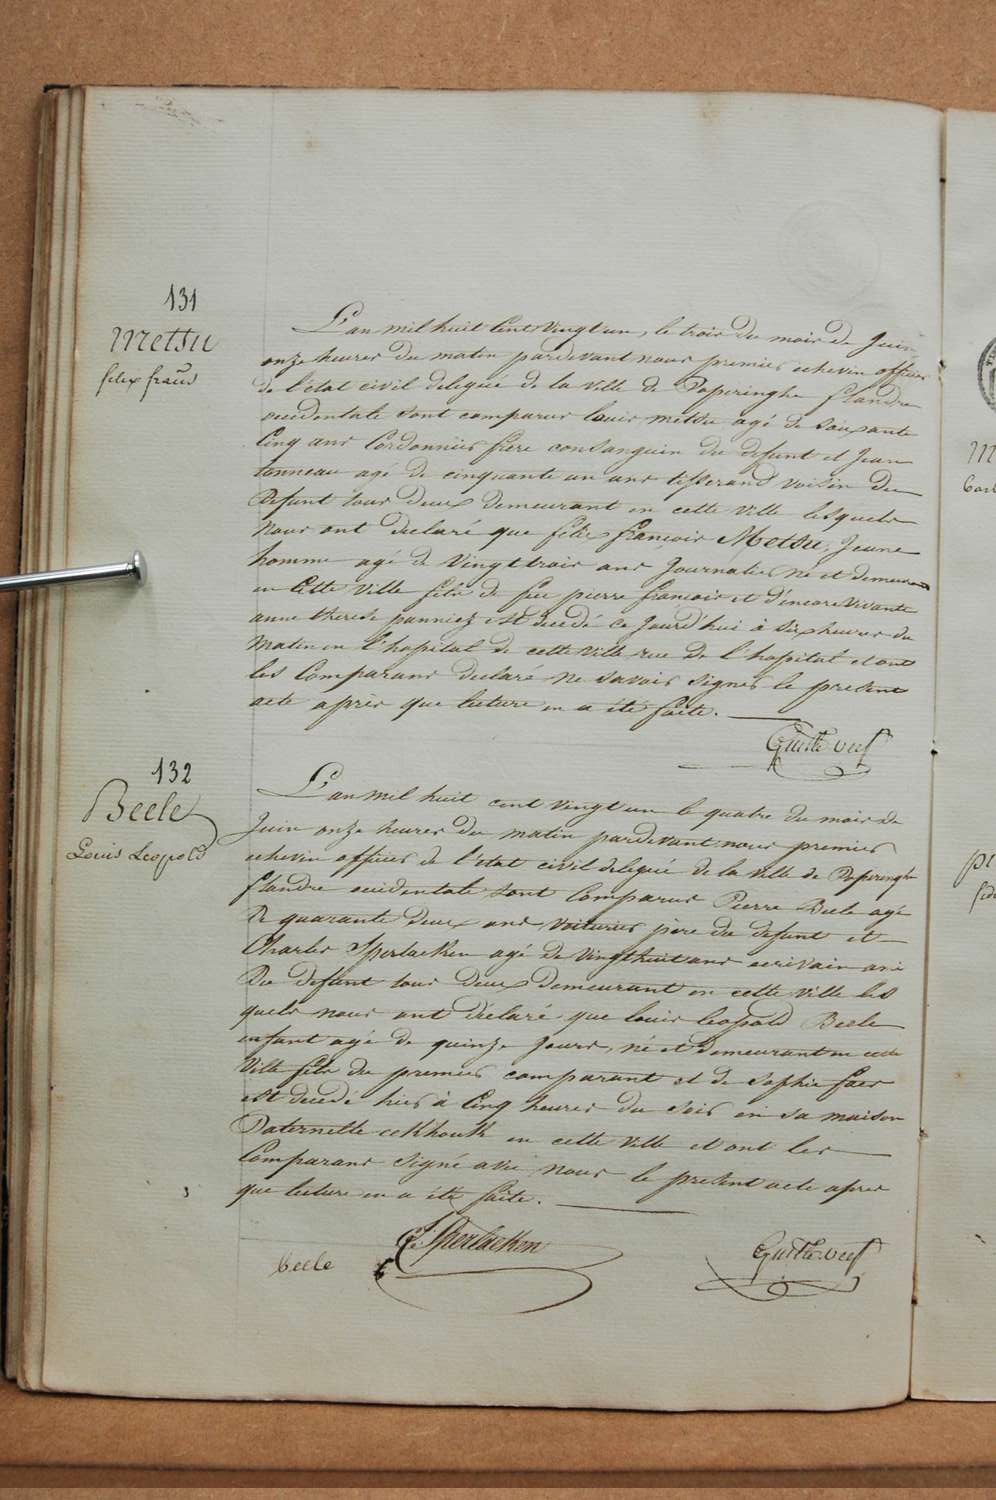 131
Metsu
felix fraṉs
L'an mil huit Cent vingt un, le trois du mois de Juin
onze heures du matin pardevant nous premier echevin officier
de l'état civil delegué de la ville de Poperinghe flandre
occidentale sont comparus Louis metsu agé de soixante
Cinq ans Cordonnier frère consanguin du defunt et Jean
tonneau agé de cinquante un ans tisserand voisin du
Defunt tous deux demeurant en cette ville lesquels
nous ont declaré que félix françois Metsu, Jeune
homme agé de vingt trois ans Journalier né et demeurant
en Cette ville fils de feu pierre françois et d'encore vivante
anne therese panniez est decedé ce Jourd'hui à six heures du
matin en l'hopital de cette ville rue de l'hopital et ont
les Comparans declaré ne savoir signer le present
acte après que lecture en a été faite.
132
Beele
Louis Leopold
L'an mil huit cent vingt un le quatre du mois de
Juin onze heures du matin pardevant nous premier
echevin officier de l'état civil delegué de la ville de Poperinghe
flandre occidentale sont Comparus Pierre Beele agé
de quarante deux ans voiturier père du defunt et
Charles Sperlaeken agé de vingt huit ans ecrivain ami
Du defunt tous deux demeurant en cette ville les
quels nous ont déclaré que louis leopold Beele
enfant agé de quinze Jours, né et demeurant en cette
ville fils du premier comparant et de Sophie faes
est decedé hier à Cinq heures du soir en sa maison
Paternelle en cette ville et ont les
Comparans signé avec nous le present acte apres
que lecture en a été faite.
beele
Sperlaeken